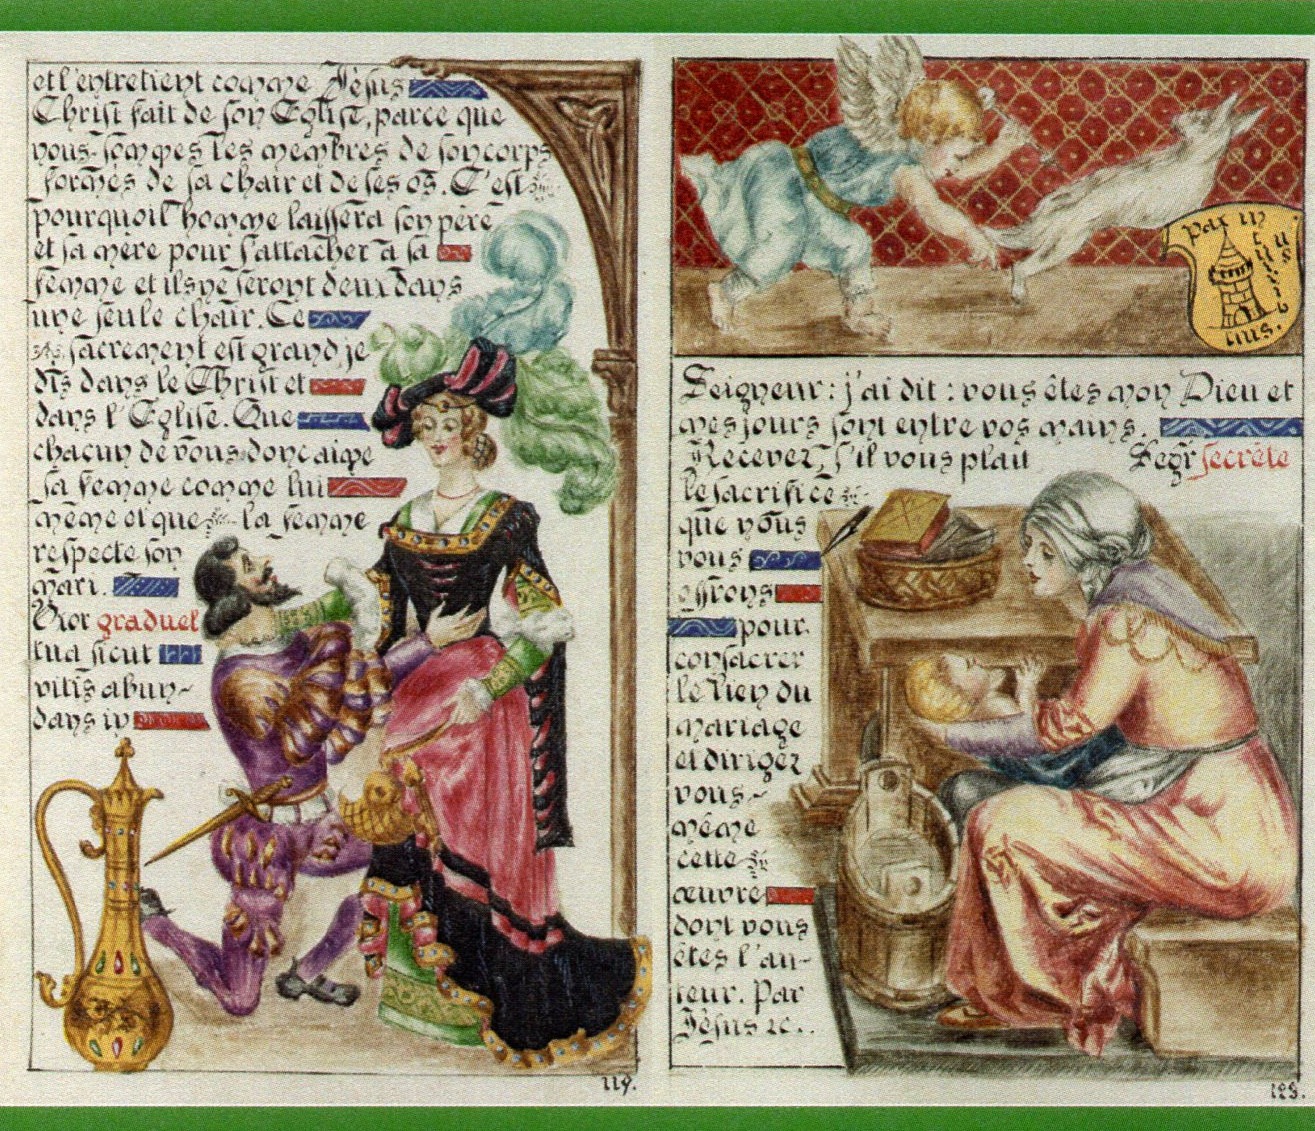 et l'entretient comme Jèsus
Christ fait de son Eglise, parce que
nous sommes les membres de son corps
formès de sa chair et de ses os. C'est
pourquoi l'homme laissera son père
et sa mère pour s'attacher à sa
femme et ils ne seront deux dans
une seule chair. Ce
sacrement est grand, je
dis dans le Christ et
dans l'Eglise. Que
chacun de vous donc aime
sa femme comme lui
même et que la femme
respecte son
mari.
Uxor graduel
tua sicut
vitis abun-
dans in
119.
pax in
virtute
tua
Seigneur: j'ai dit: vous êtes mon Dieu et
mes jours sont entre vos mains.
Recevez, s'il vous plait Segr secrète
le sacrifice
que nous
vous
offrons
pour
consacrer
le lien du
mariage
et dirigez
vous-
même
cette
œuvre
dont vous
êtes l'au-
teur. Par
Jèsus &c..